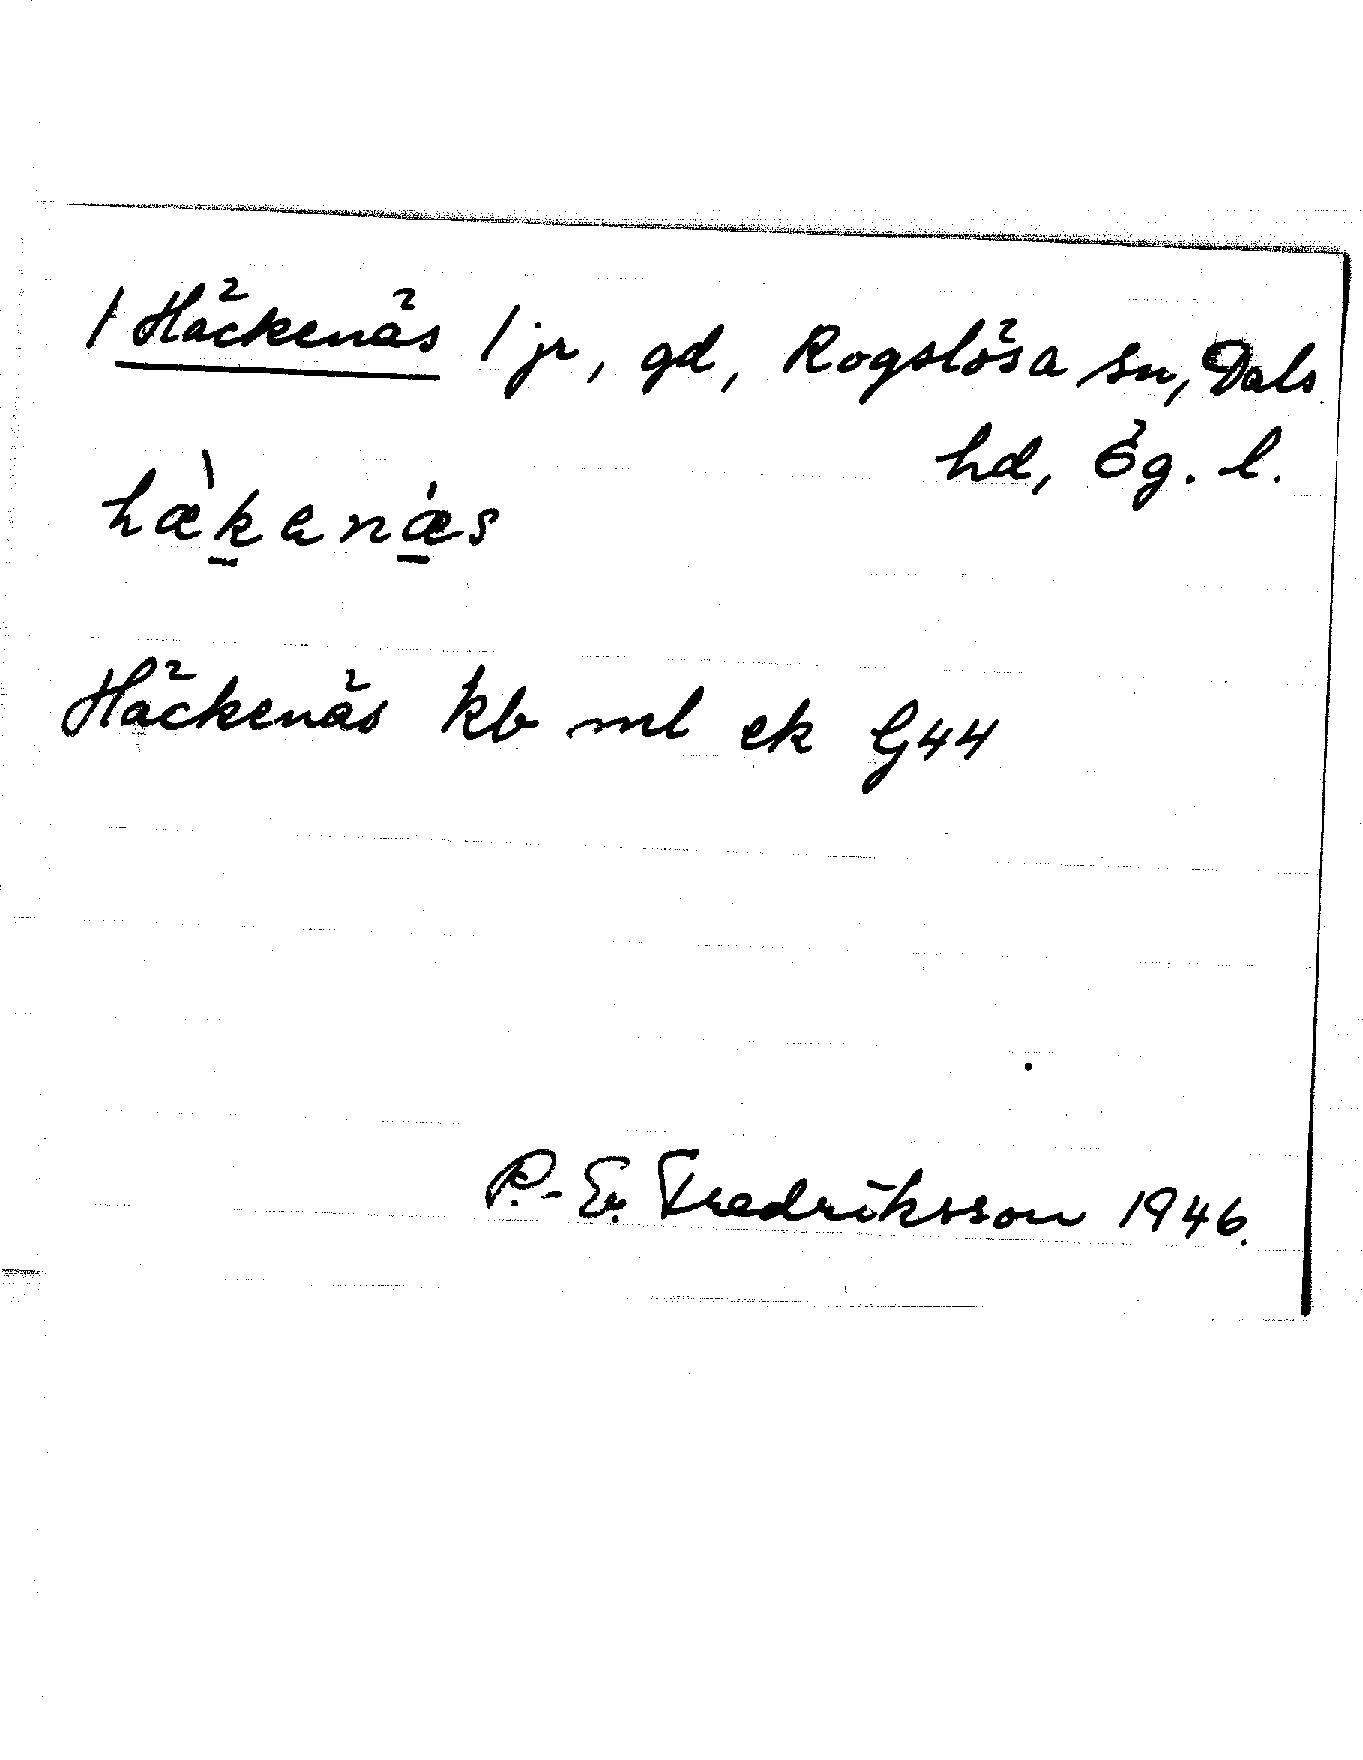 / Häckenäs / jr, gd, Rogslösa sn, Dals
hd, Ög. l.
hæ̀kanæ̀s
Häckenäs kb ml ek G44
P.-Er. Fredriksson 1946.